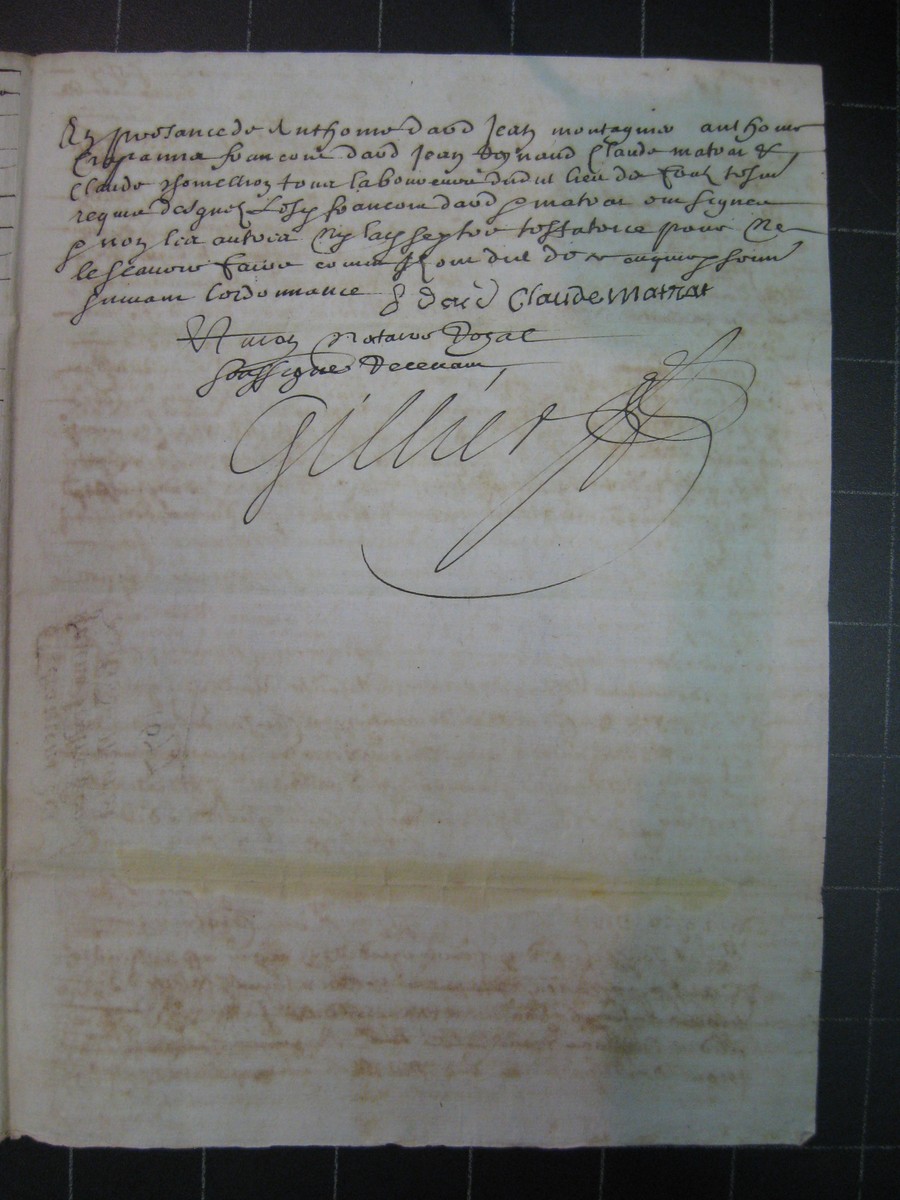 En presance de Anthoine david Jean montagnier anthoine
Crapanne francois david Jean Reynaud Claude matrat &
Claude thomellion tous laboureurs dudit lieu de tesmoins
requis Lesd francois david & matrat ont signes
& non les autres Ny lad testatrice pour Ne
le scavoir faire comme Ils ont dit de ce enquis & sommes
suivant lordonnance f david Claude Matrat
Et moy Notaire Royal
soubsigne Recevant
Gillier